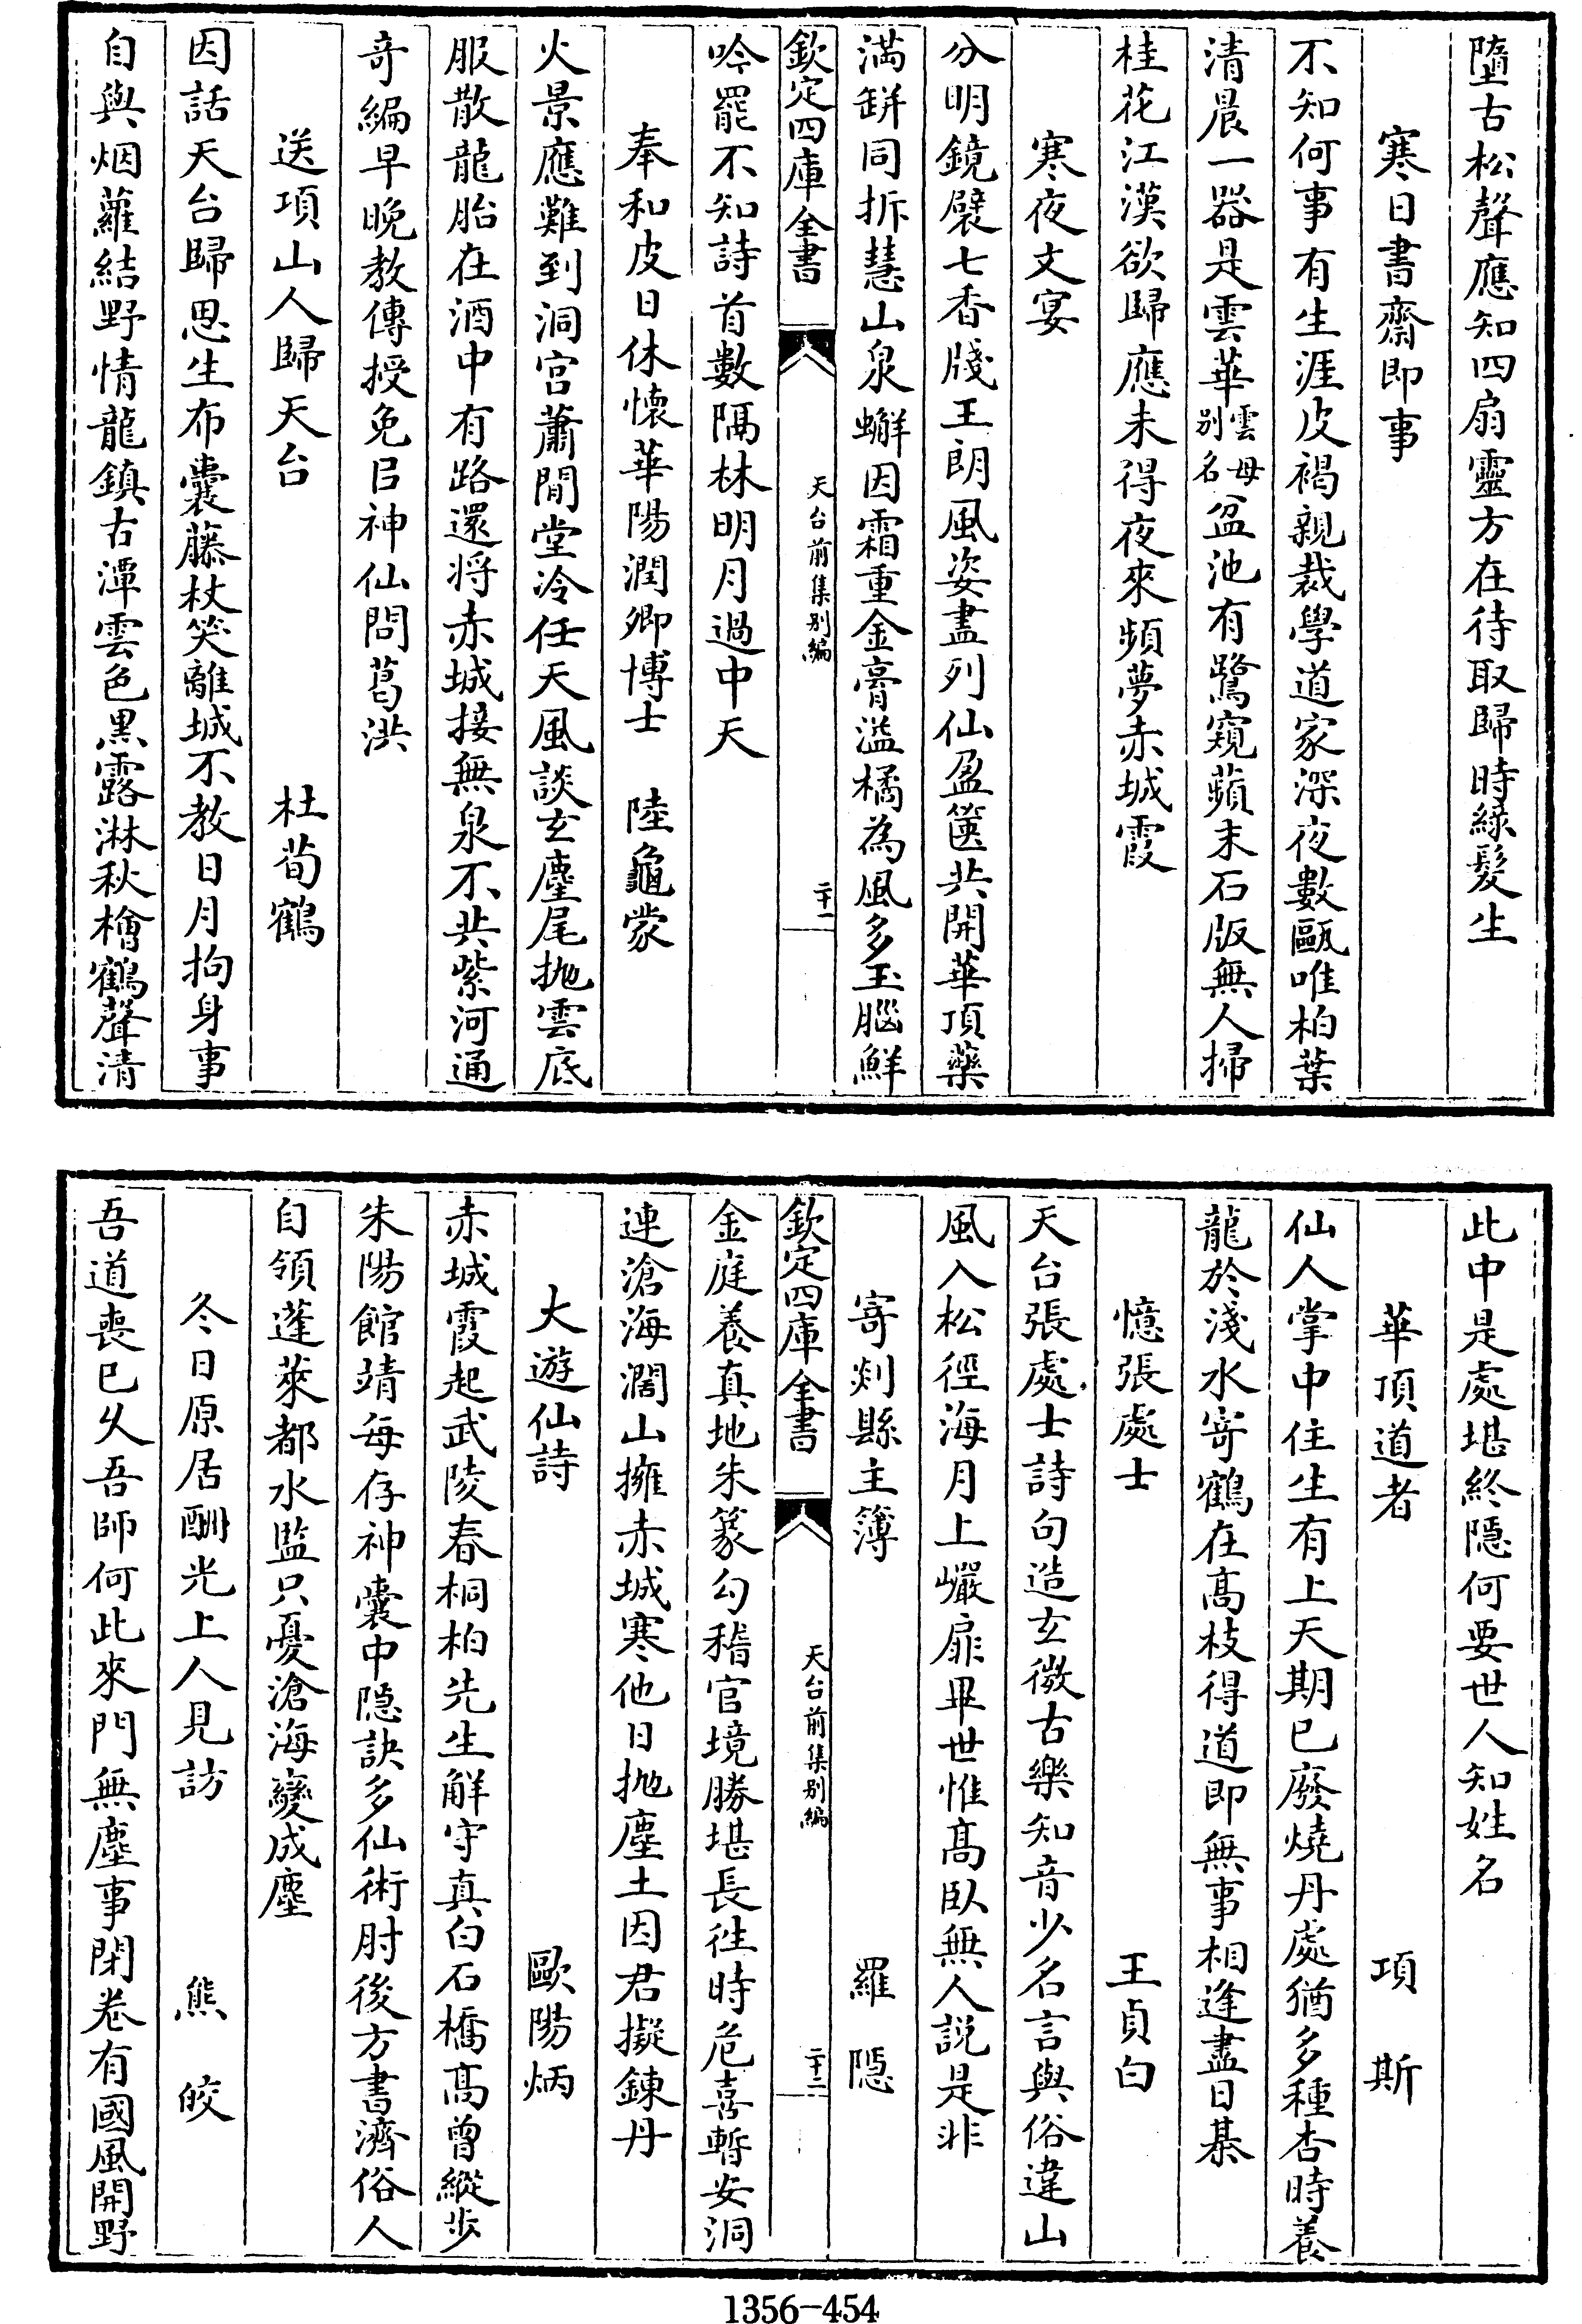 墮古松聲應知四扇靈方在待取歸時綠髮生
寒日書齋即事
不知何事有生涯皮褐親裁學道家深夜數甌唯柏葉
清晨一器是雲華雲母別名盆池有鷺窺蘋末石版無人掃
桂花江漢欲歸應未得夜來頻夢赤城霞
寒夜文宴
分明鏡襞七香牋王朗風姿盡列仙盈篋共開華頂藥
滿缾同拆慧山泉蠏因霜重金膏溢橘為風多玉腦鮮
欽定四庫全書 天台前集别編 二十一
吟罷不知詩首數隔林明月過中天
奉和皮日休懷華陽潤卿博士 陸龜蒙
火景應難到洞宫蕭閒堂冷任天風談玄麈尾抛雲底
服散龍胎在酒中有路還將赤城接無泉不共紫河通
奇編早晚教傳授免㠯神仙問葛洪
送項山人歸天台 杜荀鶴
因話天台歸思生布囊藤杖笑離城不教日月拘身事
自與烟蘿結野情龍鎮古潭雲色黑露淋秋檜鶴聲清
此中是處堪終隠何要世人知姓名
華頂道者 項斯
仙人掌中住生有上天期已廢燒丹處猶多種杏時養
龍於淺水寄鶴在髙枝得道即無事相逢盡日棊
憶張處士 王貞白
天台張處士詩句造玄微古樂知音少名言與俗違山
風入松徑海月上巗扉畢世惟髙卧無人說是非
寄剡縣主簿 羅隠
欽定四庫全書 天台前集别編 二十二
金庭養真地朱篆勾稽官境勝堪長往時危喜暫安洞
連滄海濶山擁赤城寒他日抛塵土因君擬鍊丹
大遊仙詩 歐陽炳
赤城霞起武陵春桐柏先生解守真白石橋髙曾縱步
朱陽館靖每存神囊中隠訣多仙術肘後方書濟俗人
自領蓬萊都水監只憂滄海變成塵
冬日原居酬光上人見訪 熊皎
吾道喪已乆吾師何此來門無塵事閉卷有國風開野
1356-454